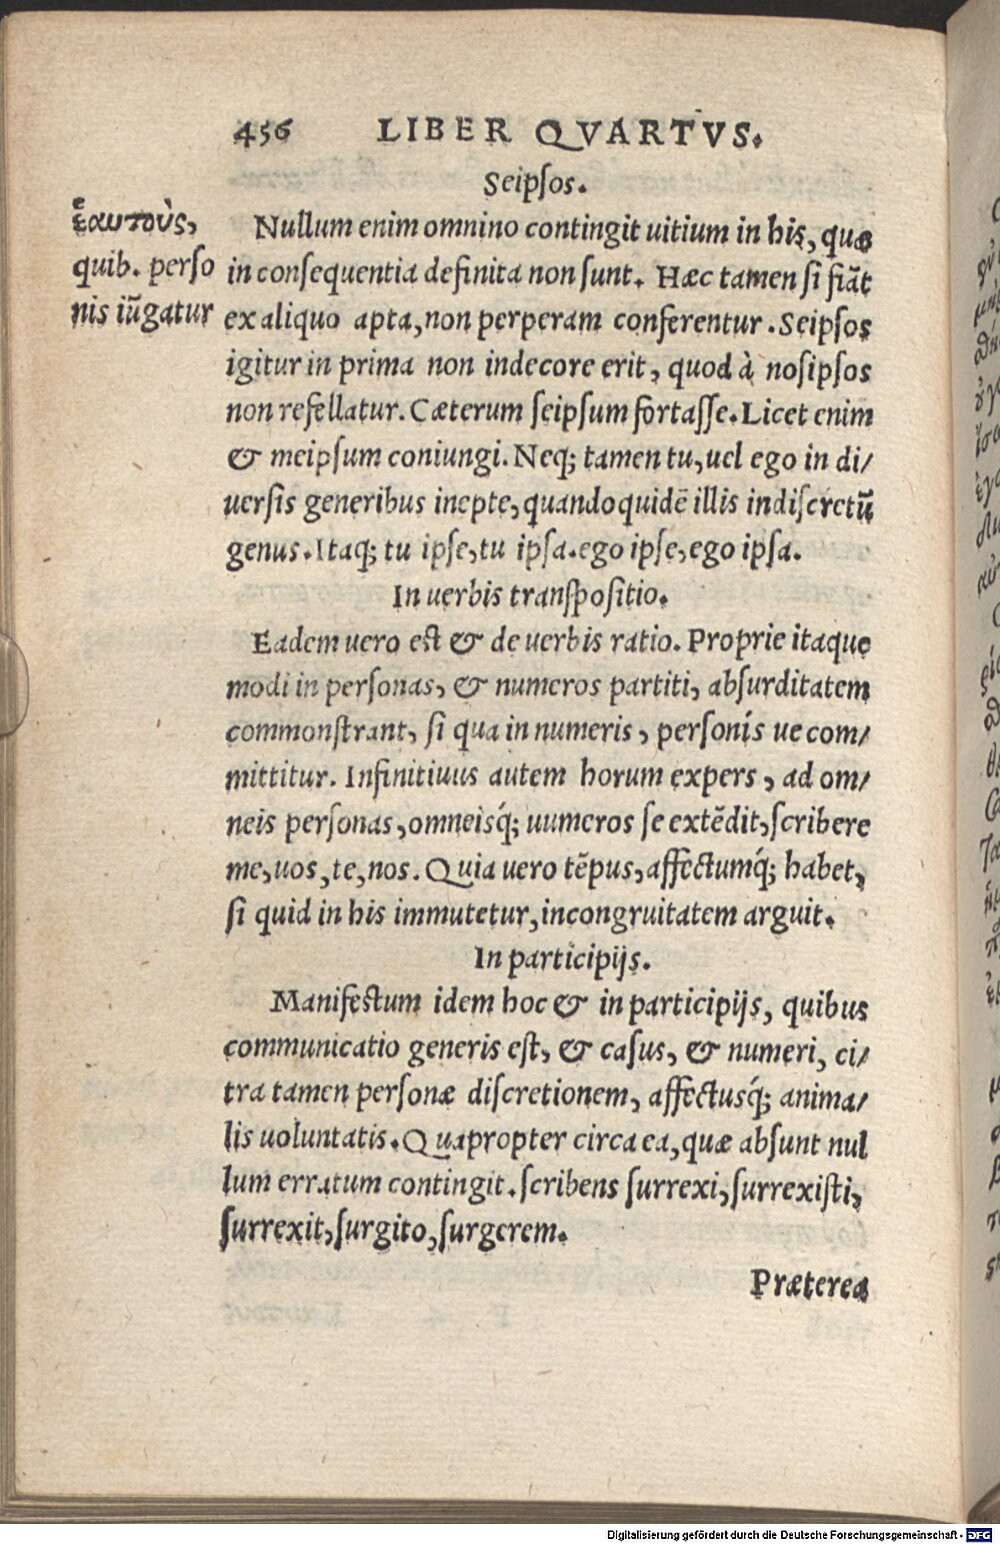 456 LIBER QVARTVS.
Seipsos.
ἑαυτοὺς,
quib. perso
nis iūgatur
Nullum enim omnino contingit uitium in his, quæ
in consequentia definita non sunt. Hæc tamen si fiāt
ex aliquo apta, non perperam conferentur. Seipsos
igitur in prima non indecore erit, quod à nosipsos
non refellatur. Cæterum seipsum fortasse. Licet enim
& meipsum coniungi. Neq; tamen tu, uel ego in di/
uersis generibus inepte, quandoquidē illis indiscretū
genus. Itaq; tu ipse, tu ipsa. ego ipse, ego ipsa.
In uerbis transpositio.
Eadem uero est & de uerbis ratio. Proprie itaque
modi in personas, & numeros partiti, absurditatem
commonstrant, si qua in numeris, personís ue com/
mittitur. Infinitiuus autem horum expers, ad om/
neis personas, omneisq́; uumeros se extēdit, scribere
me, uos, te, nos. Quia uero tēpus, affectumq́; habet,
si quid in his immutetur, incongruitatem arguit.
In participijs.
Manifestum idem hoc & in participijs, quibus
communicatio generis est, & casus, & numeri, ci/
tra tamen personæ discretionem, affectusq́; anima/
lis uoluntatis. Quapropter circa ea, quæ absunt nul
lum erratum contingit. scribens surrexi, surrexisti,
surrexit, surgito, surgerem.
Præterea
Digitalisierung gefördert durch die Deutsche Forschungsgemeinschaft - DFG